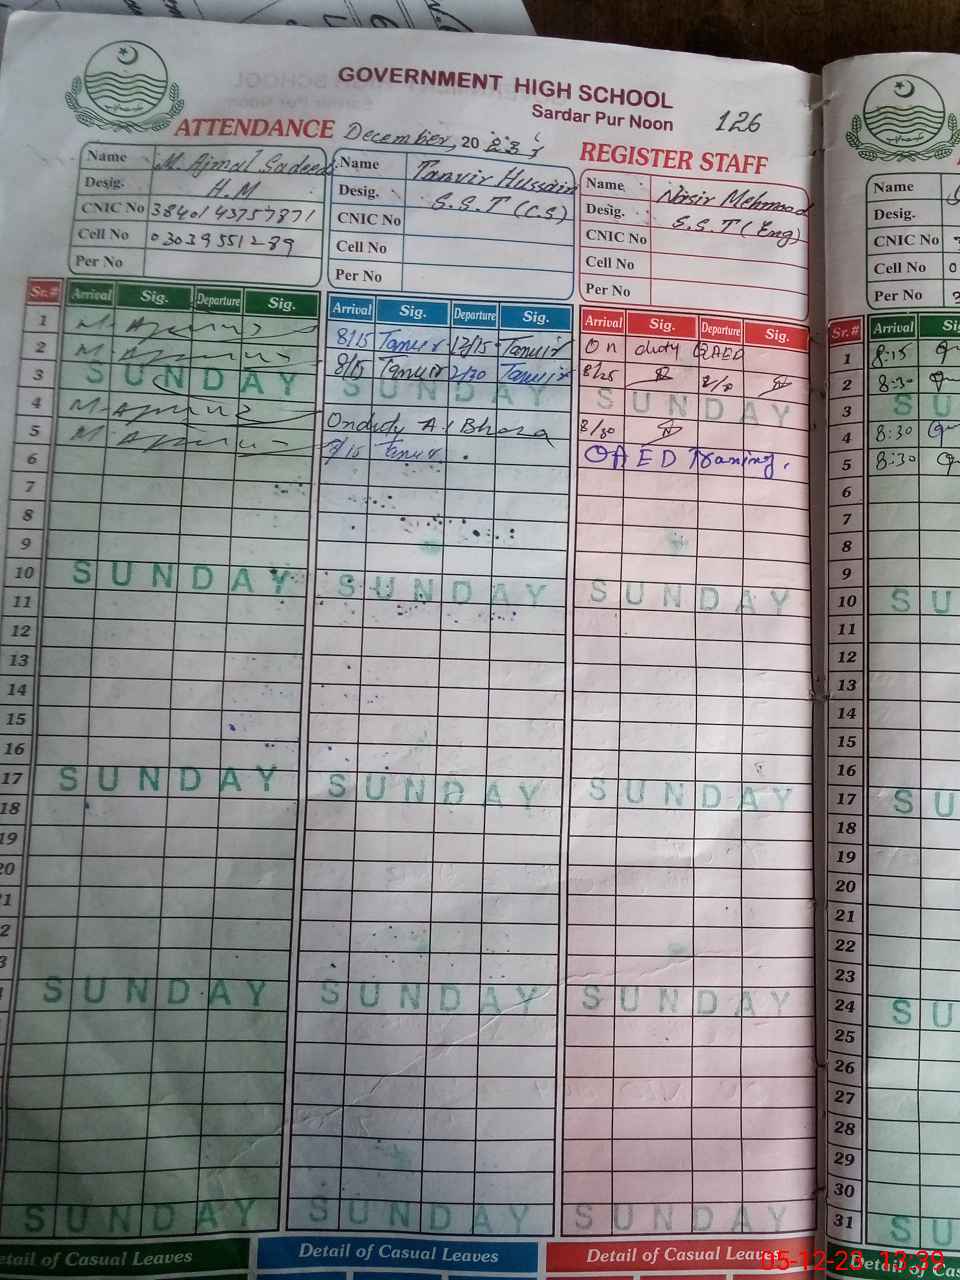 GOVERNMENT HIGH SCHOOL
Sardar Pur Noon
126
ATTENDANCE December, 20 23
REGISTER STAFF
Name M. Ajmal Sadeed
Desig. H.M
CNIC No 3840143757871
Cell No 03039551289
Per No
Name Tanvir Hussain
Desig. S.S.T (C.S)
CNIC No
Cell No
Per No
Name Nasir Mehmood
Desig. S.S.T (Eng)
CNIC No
Cell No
Per No
Name
Desig.
CNIC No
Cell No
Per No
Sr.# Arrival Sig. Departure Sig. Arrival Sig. Departure Sig. Arrival Sig. Departure Sig. Sr.# Arrival
1 8/15 Tanvir 12/15 Tanvir On duty QAED 1 8:15
2 8/15 Tanvir 2/30 Tanvir 8/25 2 8:30
3 SUNDAY SUNDAY SUNDAY 3 SU
4 On duty A. Bhara 8/30 4 8:30
5 8/15 Tanvir QAED Traning. 5 8:30
6 6
7 7
8 8
9 9
10 SUNDAY SUNDAY SUNDAY 10 SU
11 11
12 12
13 13
14 14
15 15
16 16
17 SUNDAY SUNDAY SUNDAY 17 SU
18 18
19 19
20 20
21
22
23
SUNDAY SUNDAY SUNDAY 24 SU
25
26
27
28
29
30
SUNDAY SUNDAY SUNDAY 31 SU
Detail of Casual Leaves Detail of Casual Leaves Detail of Casual Leaves Detail of Cas
05-12-23 13:39